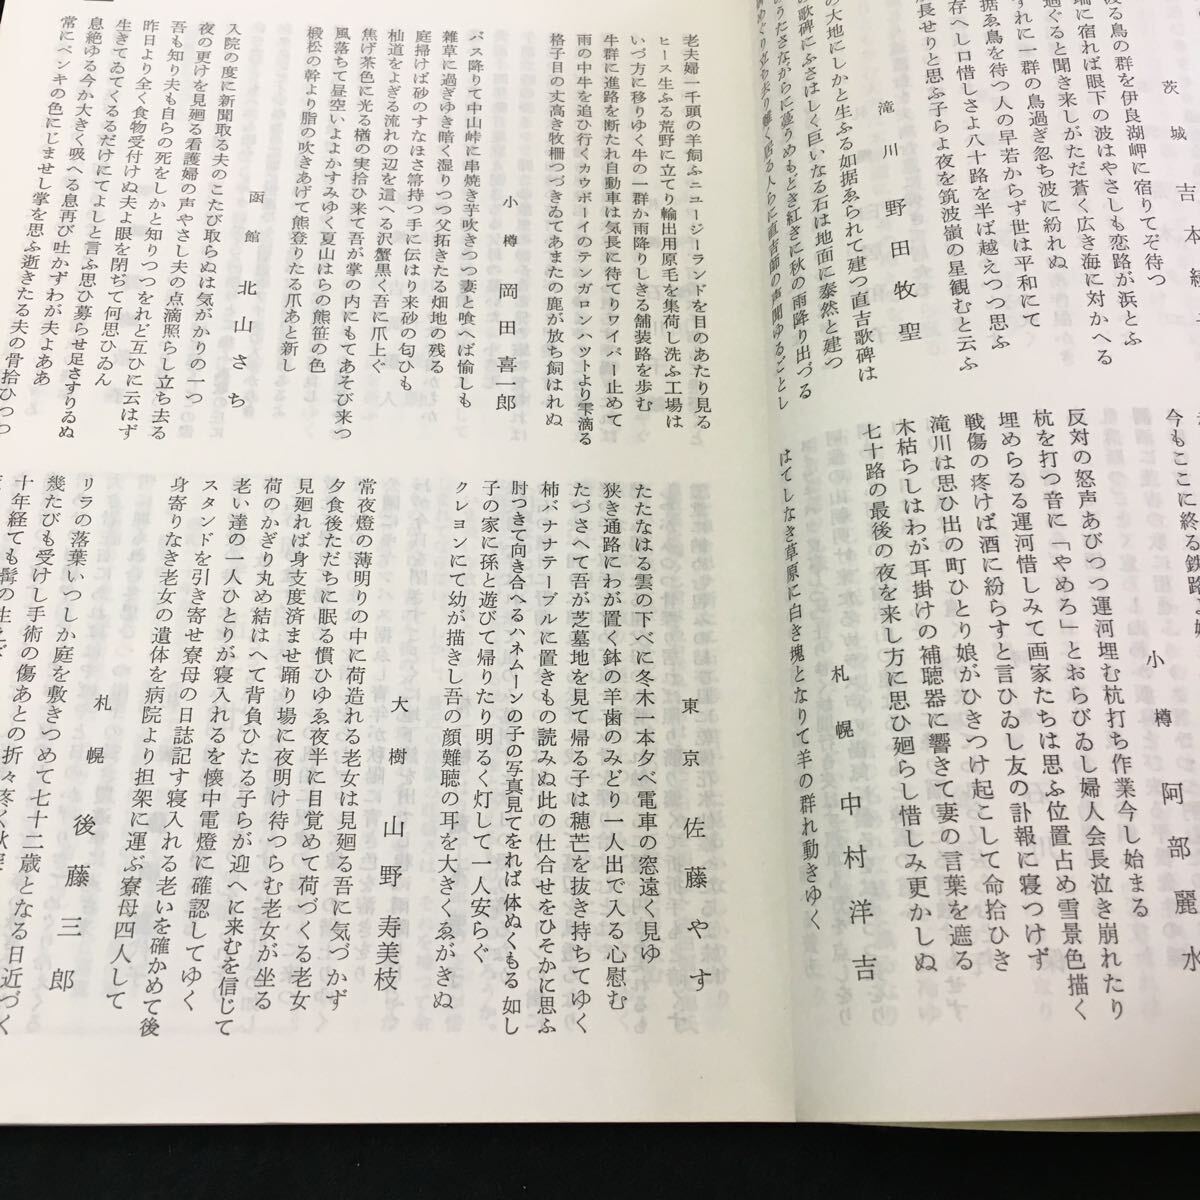 茨城 吉本
渡る鳥の群を伊良湖岬に宿りてぞ待つ
端に宿れば眼下の波はやさしも恋路が浜とふ
過ぐると聞き来しがただ蒼く広き海に対かへる
ずれに一群の鳥過ぎ忽ち波に紛れぬ
据ゑ鳥を待つ人の早若からず世は平和にて
存へし口惜しさよ八十路を半ば越えつつ思ふ
長せりと思ふ子らよ夜を筑波嶺の星観むと云ふ
滝川 野田牧聖
の大地にしかと生ふる如据ゑられて建つ直吉歌碑は
歌碑にふさはしく巨いなる石は地面に泰然と建つ
小樽 阿部麗水
今もここに終る鉄路
反対の怒声あびつつ運河埋む杭打ち作業今し始まる
杭を打つ音に「やめろ」とおらびゐし婦人会長泣き崩れたり
埋めらるる運河惜しみて画家たちは思ふ位置占め雪景色描く
戦傷の疼けば酒に紛らすと言ひゐし友の訃報に寝つけず
滝川は思ひ出の町ひとり娘がひきつけ起こして命拾ひき
木枯らしはわが耳掛けの補聴器に響きて妻の言葉を遮る
七十路の最後の夜を来し方に思ひ廻らし惜しみ更かしぬ
札幌 中村洋吉
はてしなき草原に白き塊となりて羊の群れ動きゆく
老夫婦一千頭の羊飼ふニュージーランドを目のあたり見る
ヒース生ふる荒野に立てり輸出用原毛を集荷し洗ふ工場は
いづ方に移りゆく牛の一群か雨降りしきる舗装路を歩む
牛群に進路を断たれ自動車は気長に待てりワイパー止めて
雨の中牛を追ひ行くカウボーイのテンガロンハットより雫滴る
格子目の丈高き牧柵つづきゐてあまたの鹿が放ち飼はれぬ
小樽 岡田喜一郎
バス降りて中山峠に串焼き芋吹きつつ妻と喰へば愉しも
雑草に過ぎゆき暗く湿りつつ父拓きたる畑地の残る
庭掃けば砂のすなほさ箒持つ手に伝はり来砂の匂ひも
杣道をよぎる流れの辺を這へる沢蟹黒く吾に爪上ぐ
焦げ茶色に光る楢の実拾ひ来て吾が掌の内にもてあそび来つ
風落ちて昼空いよよかすみゆく夏山はらの熊笹の色
椴松の幹より脂の吹きあげて熊登りたる爪あと新し
函館 北山さち
入院の度に新聞取る夫のこたび取らぬは気がかりの一つ
夜の更けを見廻る看護婦の声やさし夫の点滴照らし立ち去る
吾も知り夫も自らの死をしかと知りつつをれど互ひに云はず
昨日より全く食物受付けぬ夫よ眼を閉ぢて何思ひゐん
生きてゐてくるるだけにてよしと言ふ思ひ募らせ足さすりゐぬ
息絶ゆる今か大きく吸へる息再び吐かずわが夫よああ
常にペンキの色にじませし掌を思ふ逝きたる夫の骨拾ひつつ
東京 佐藤やす
たたなはる雲の下べに冬木一本夕べ電車の窓遠く見ゆ
狭き通路にわが置く鉢の羊歯のみどり一人出で入る心慰む
たづさへて吾が芝墓地を見て帰る子は穂芒を抜き持ちてゆく
柿バナナテーブルに置きもの読みぬ此の仕合せをひそかに思ふ
肘つきて向き合へるハネムーンの子の写真見てをれば体ぬくもる如し
子の家に孫と遊びて帰りたり明るく灯して一人安らぐ
クレヨンにて幼が描きし吾の顔難聴の耳を大きくゑがきぬ
大樹 山野寿美枝
常夜燈の薄明りの中に荷造れる老女は見廻る吾に気づかず
夕食後ただちに眠る慣ひゆゑ夜半に目覚めて荷づくる老女
見廻れば身支度済ませ踊り場に夜明け待つらむ老女が坐る
荷のかぎり丸め結はへて背負ひたる子らが迎へに来むを信じて
老い達の一人ひとりが寝入れるを懐中電燈に確認してゆく
スタンドを引き寄せ寮母の日誌記す寝入れる老いを確かめて後
身寄りなき老女の遺体を病院より担架に運ぶ寮母四人して
札幌 後藤三郎
リラの落葉いつしか庭を敷きつめて七十二歳となる日近づく
幾たびも受けし手術の傷あとの折々疼く
十年経ても髯の生え